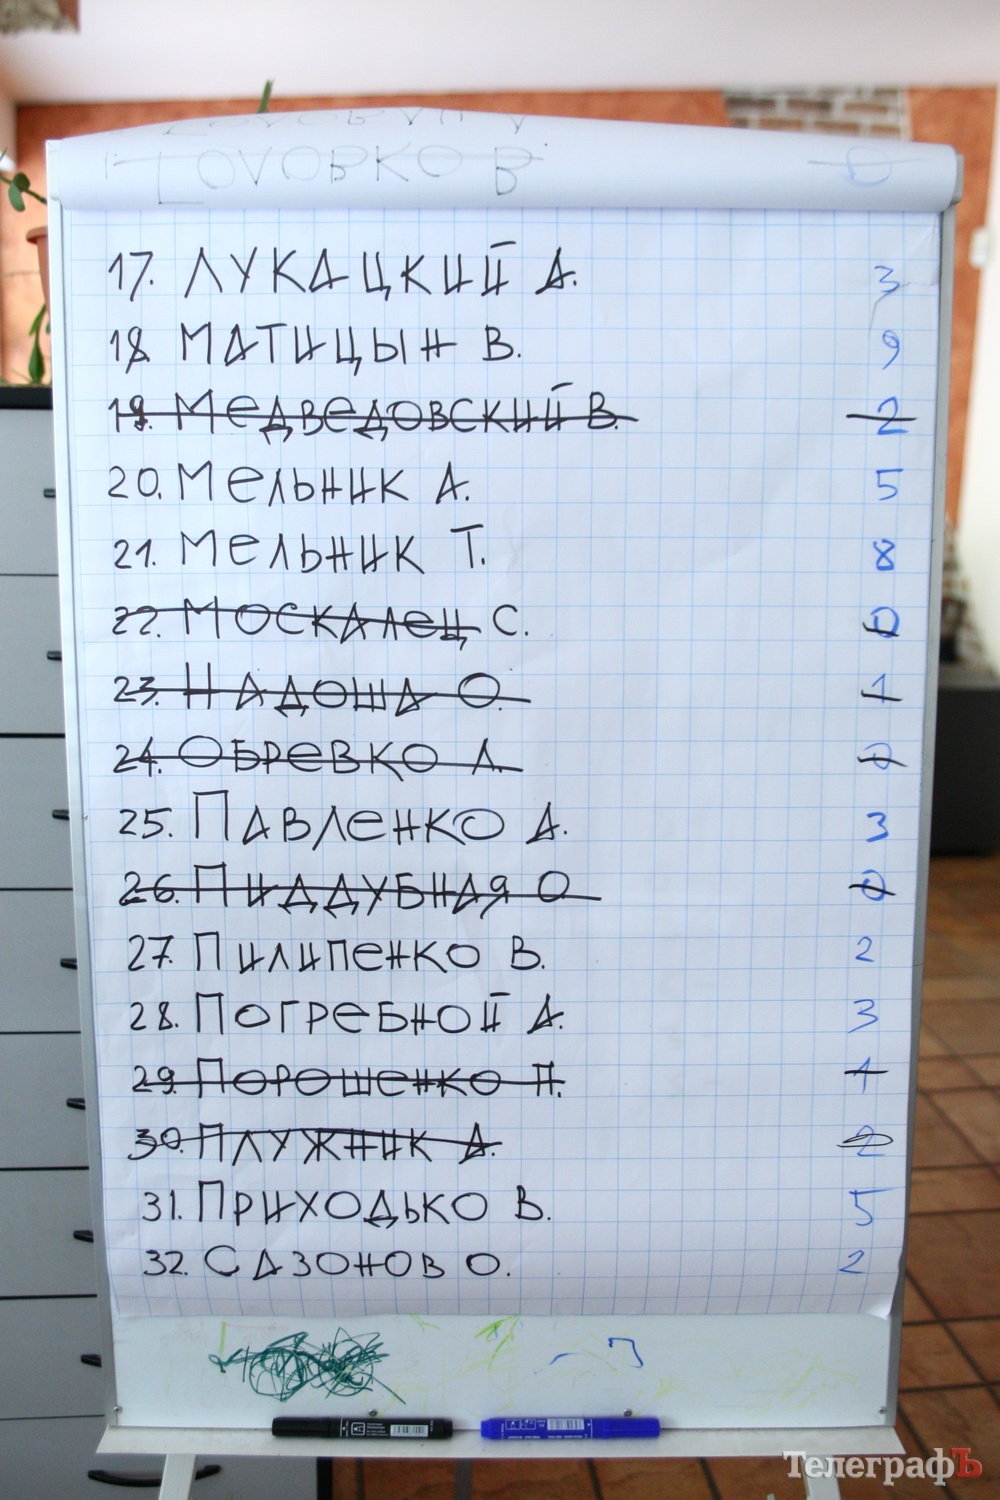 Головко В 0
17. Лукацкий А. 3
18. Матицын В. 9
19. Медведовский В. 2
20. Мельник А. 5
21. Мельник Т. 8
22. Москалец С. 0
23. Надоша О. 1
24. Обревко А. 0
25. Павленко А. 3
26. Пиддубная О 0
27. Пилипенко В. 2
28. Погребной А. 3
29. Порошенко П. 1
30. Плужник А. 2
31. Приходько В. 5
32. Сазонов О. 2
ТелеграфЪ